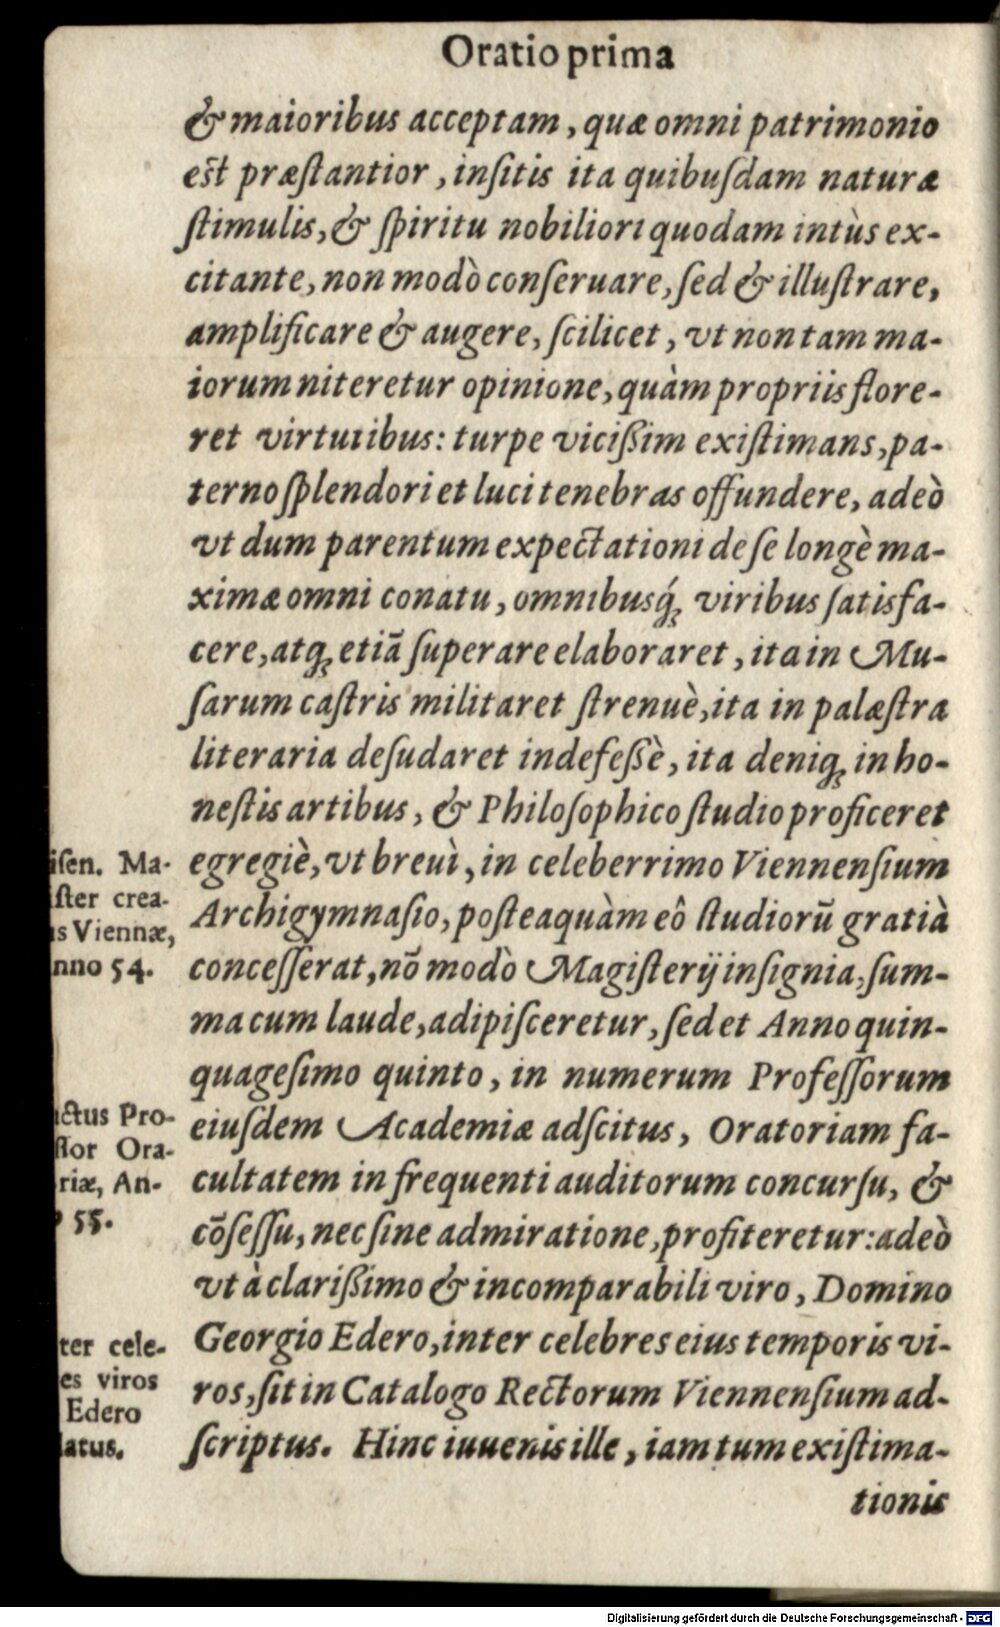 Oratio prima
& maioribus acceptam, quæ omni patrimonio
est præſtantior, inſitis ita quibuſdam naturæ
ſtimulis, & ſpiritu nobiliori quodam intùs ex-
citante, non modò conſeruare, ſed & illuſtrare,
amplificare & augere, ſcilicet, vt non tam ma-
iorum niteretur opinione, quàm propriis flore-
ret virtutibus: turpe viciſſim exiſtimans, pa-
terno ſplendori et luci tenebras offundere, adeò
vt dum parentum expectationi de ſe longè ma-
ximæ omni conatu, omnibusq́; viribus ſatisfa-
cere, atq; etiã ſuperare elaboraret, ita in Mu-
ſarum caſtris militaret ſtrenuè, ita in palæſtra
literaria deſudaret indefeſſè, ita deniq; in ho-
neſtis artibus, & Philoſophico ſtudio proficeret
egregiè, vt breuì, in celeberrimo Viennenſium
Archigymnaſio, poſteaquàm eô ſtudiorũ gratià
conceſſerat, nõ modò Magiſterij inſignia, ſum-
ma cum laude, adipiſceretur, ſed et Anno quin-
quageſimo quinto, in numerum Profeſſorum
eiuſdem Academiæ adſcitus, Oratoriam fa-
cultatem in frequenti auditorum concurſu, &
cõſeſſu, nec ſine admiratione, profiteretur: adeò
vt à clariſſimo & incomparabili viro, Domino
Georgio Edero, inter celebres eius temporis vi-
ros, ſit in Catalogo Rectorum Viennenſium ad-
ſcriptus. Hinc iuuenis ille, iam tum exiſtima-
tionis
iſen. Ma-
ſter crea-
s Viennæ,
nno 54.
ctus Pro-
ſſor Ora-
riæ, An-
55.
ter cele-
es viros
Edero
latus.
Digitalisierung gefördert durch die Deutsche Forschungsgemeinschaft - DFG